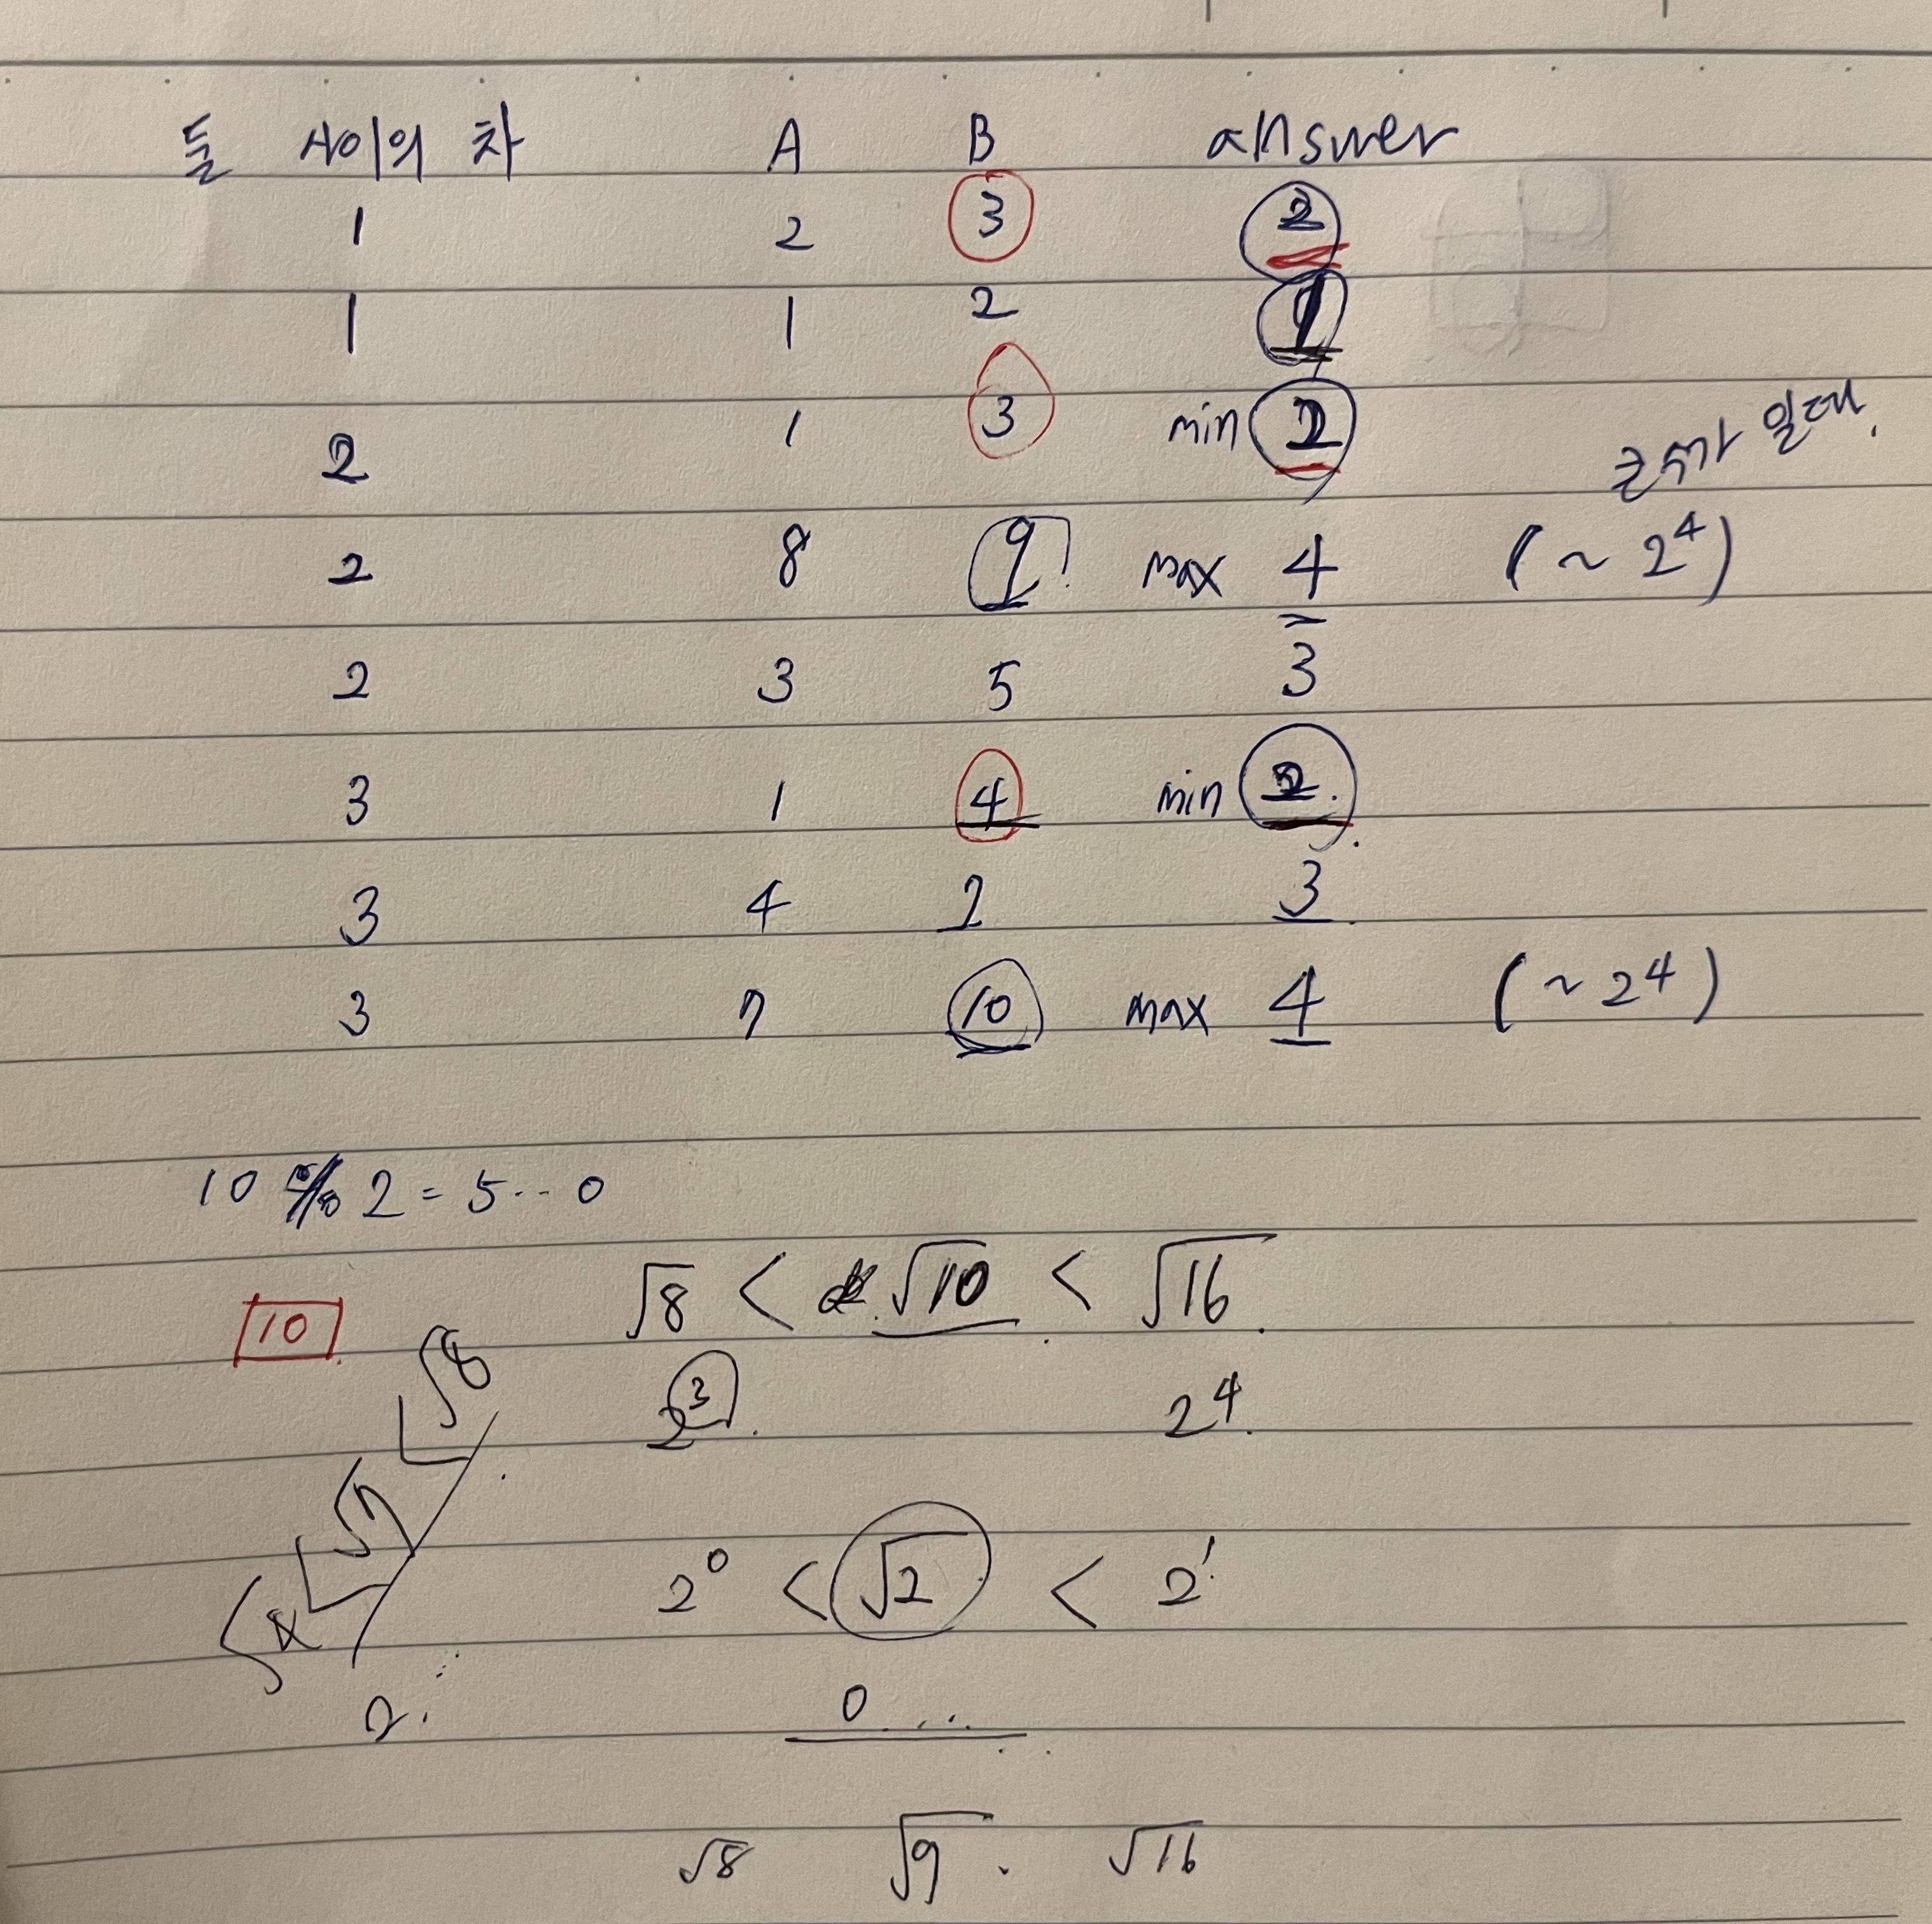 둘 사이의 차 A B answer
1 2 3 2
1 1 2 1
2 1 3 min 2
일때.
2 8 9 max 4 (~2⁴)
2 3 5 3
3 1 4 min 2.
3 4 7 3.
3 7 10 max 4 (~2⁴)
10 % 2 = 5...0
10
√8 < √10 < √16.
√8
2³. 2⁴.
√7
2⁰ < √2 < 2¹
2.
0...
√8 √9. √16